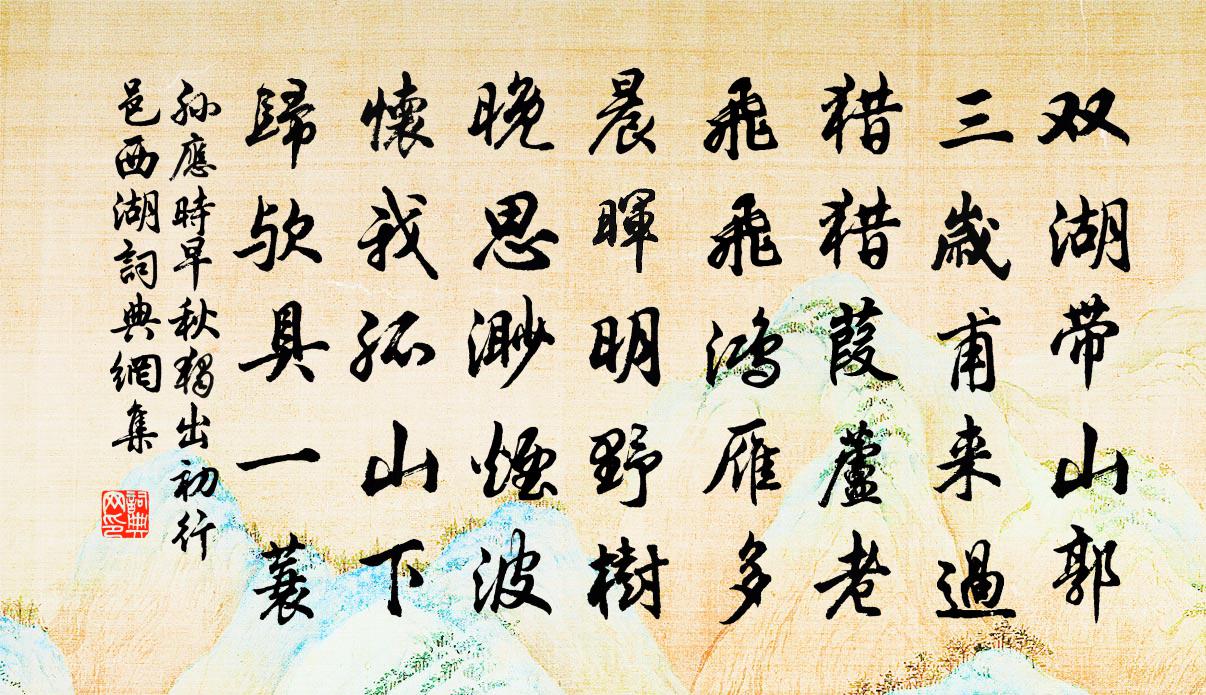 双湖带山郭
三歲甫来過
猎猎葭蘆老
飛飛鴻雁多
晨暉明野樹
晚思渺煙波
懷我孤山下
歸欤具一蓑
孙應時早秋獨出初行
邑西湖詞典網集
詞典网印